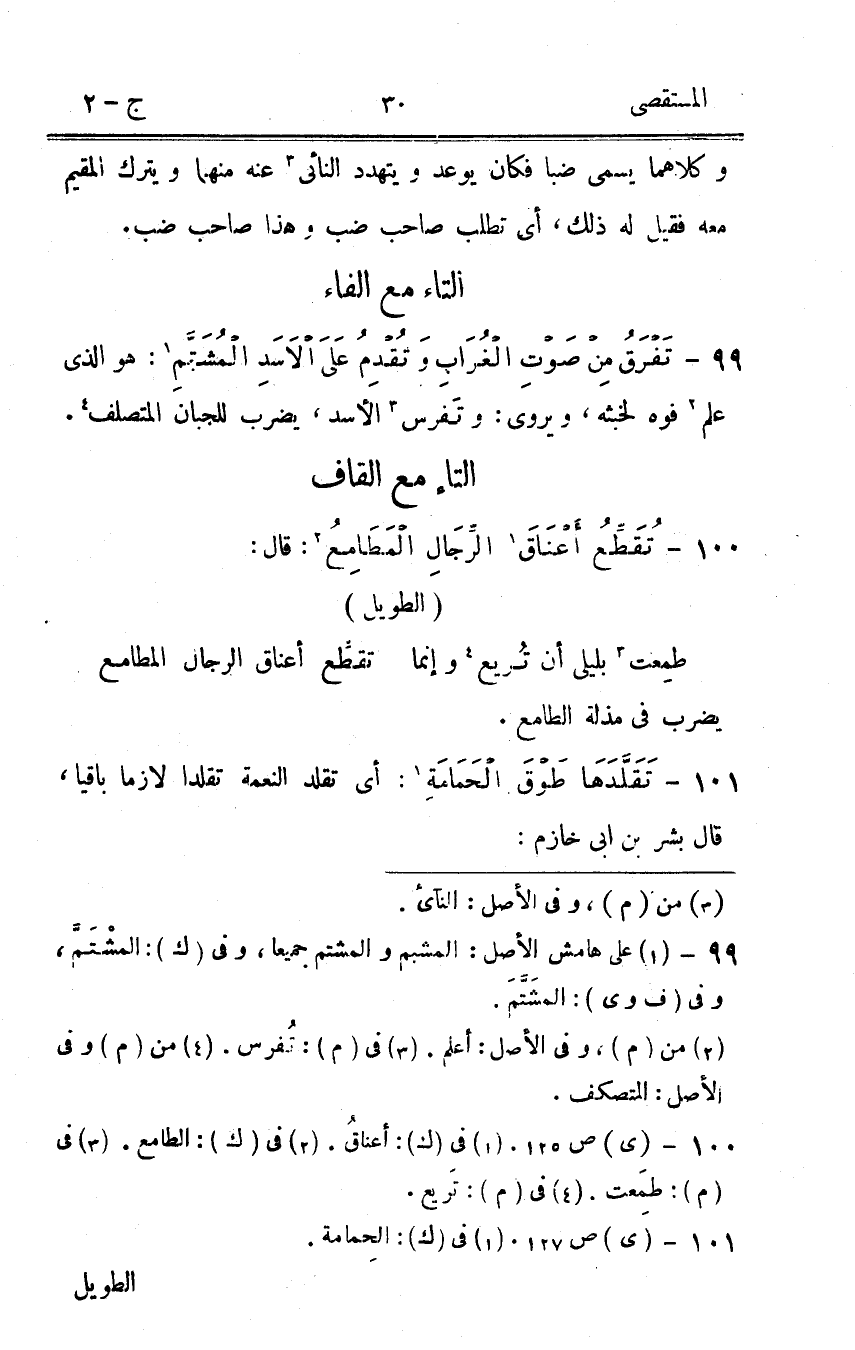 المستقصى ٣٠ ج - ٢
و كلاهما يسمى ضبا فكان يوعد و يتهدد النائى٣ عنه منهما و يترك المقيم
معه فقيل له ذلك، أى تطلب صاحب ضب و هذا صاحب ضب.
التاء مع الفاء
٩٩ - تَفْرَقُ مِنْ صَوْتِ الْغُرَابِ وَ تُقْدِمُ عَلَى الْأَسَدِ الْمُشَتَّمِ١ : هو الذى
علم٢ فوه لخبثه، و يروى: و تَفرس٣ الأسد، يضرب للجبان المتصلف٤ .
التاء مع القاف
١٠٠ - تُقَطِّعُ أَعْنَاقَ١ الرِّجَالِ الْمَطَامِعُ٢ : قال:
( الطويل )
طمِعت٣ بليلى أن تُريع٤ و إنما تقطِّع أعناق الرجال المطامع
يضرب فى مذلة الطامع .
١٠١ - تَقَلَّدَهَا طَوْقَ الْحَمَامَةِ١ : أى تقلد النعمة تقلدا لازما باقيا،
قال بشر بن ابى خازم :
(٣) من ( م ) ، و فى الأصل : النآئ .
٩٩ - (١) على هامش الأصل : المشبم و المشتم جميعا، و فى ( ك ) : المشْتَمَّ ،
و فى ( ف و ى ) : المشَتَّمَ .
(٢) من ( م ) ، و فى الأصل : أعلم . (٣) فى ( م ) : تُفرس . (٤) من ( م ) و فى
الأصل : المتصكف .
١٠٠ - ( ى ) ص ١٢٥ . (١) فى (ك): أعناقُ . (٢) فى ( ك ) : الطامع . (٣) فى
( م ) : طمَعت . (٤) فى ( م ) : تَريع .
١٠١ - ( ى ) ص ١٢٧ . (١) فى (ك): الحِمامة .
الطويل